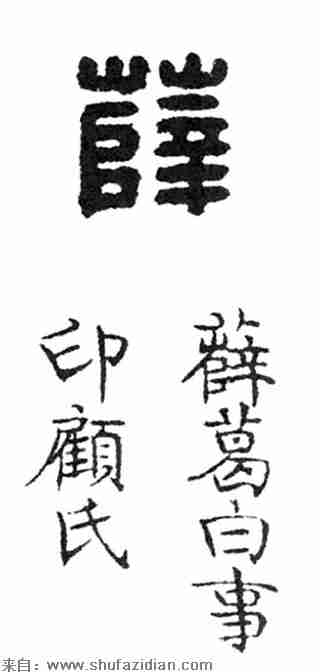 薛
薛葛白事
印顧氏
来自：www.shufazidian.com